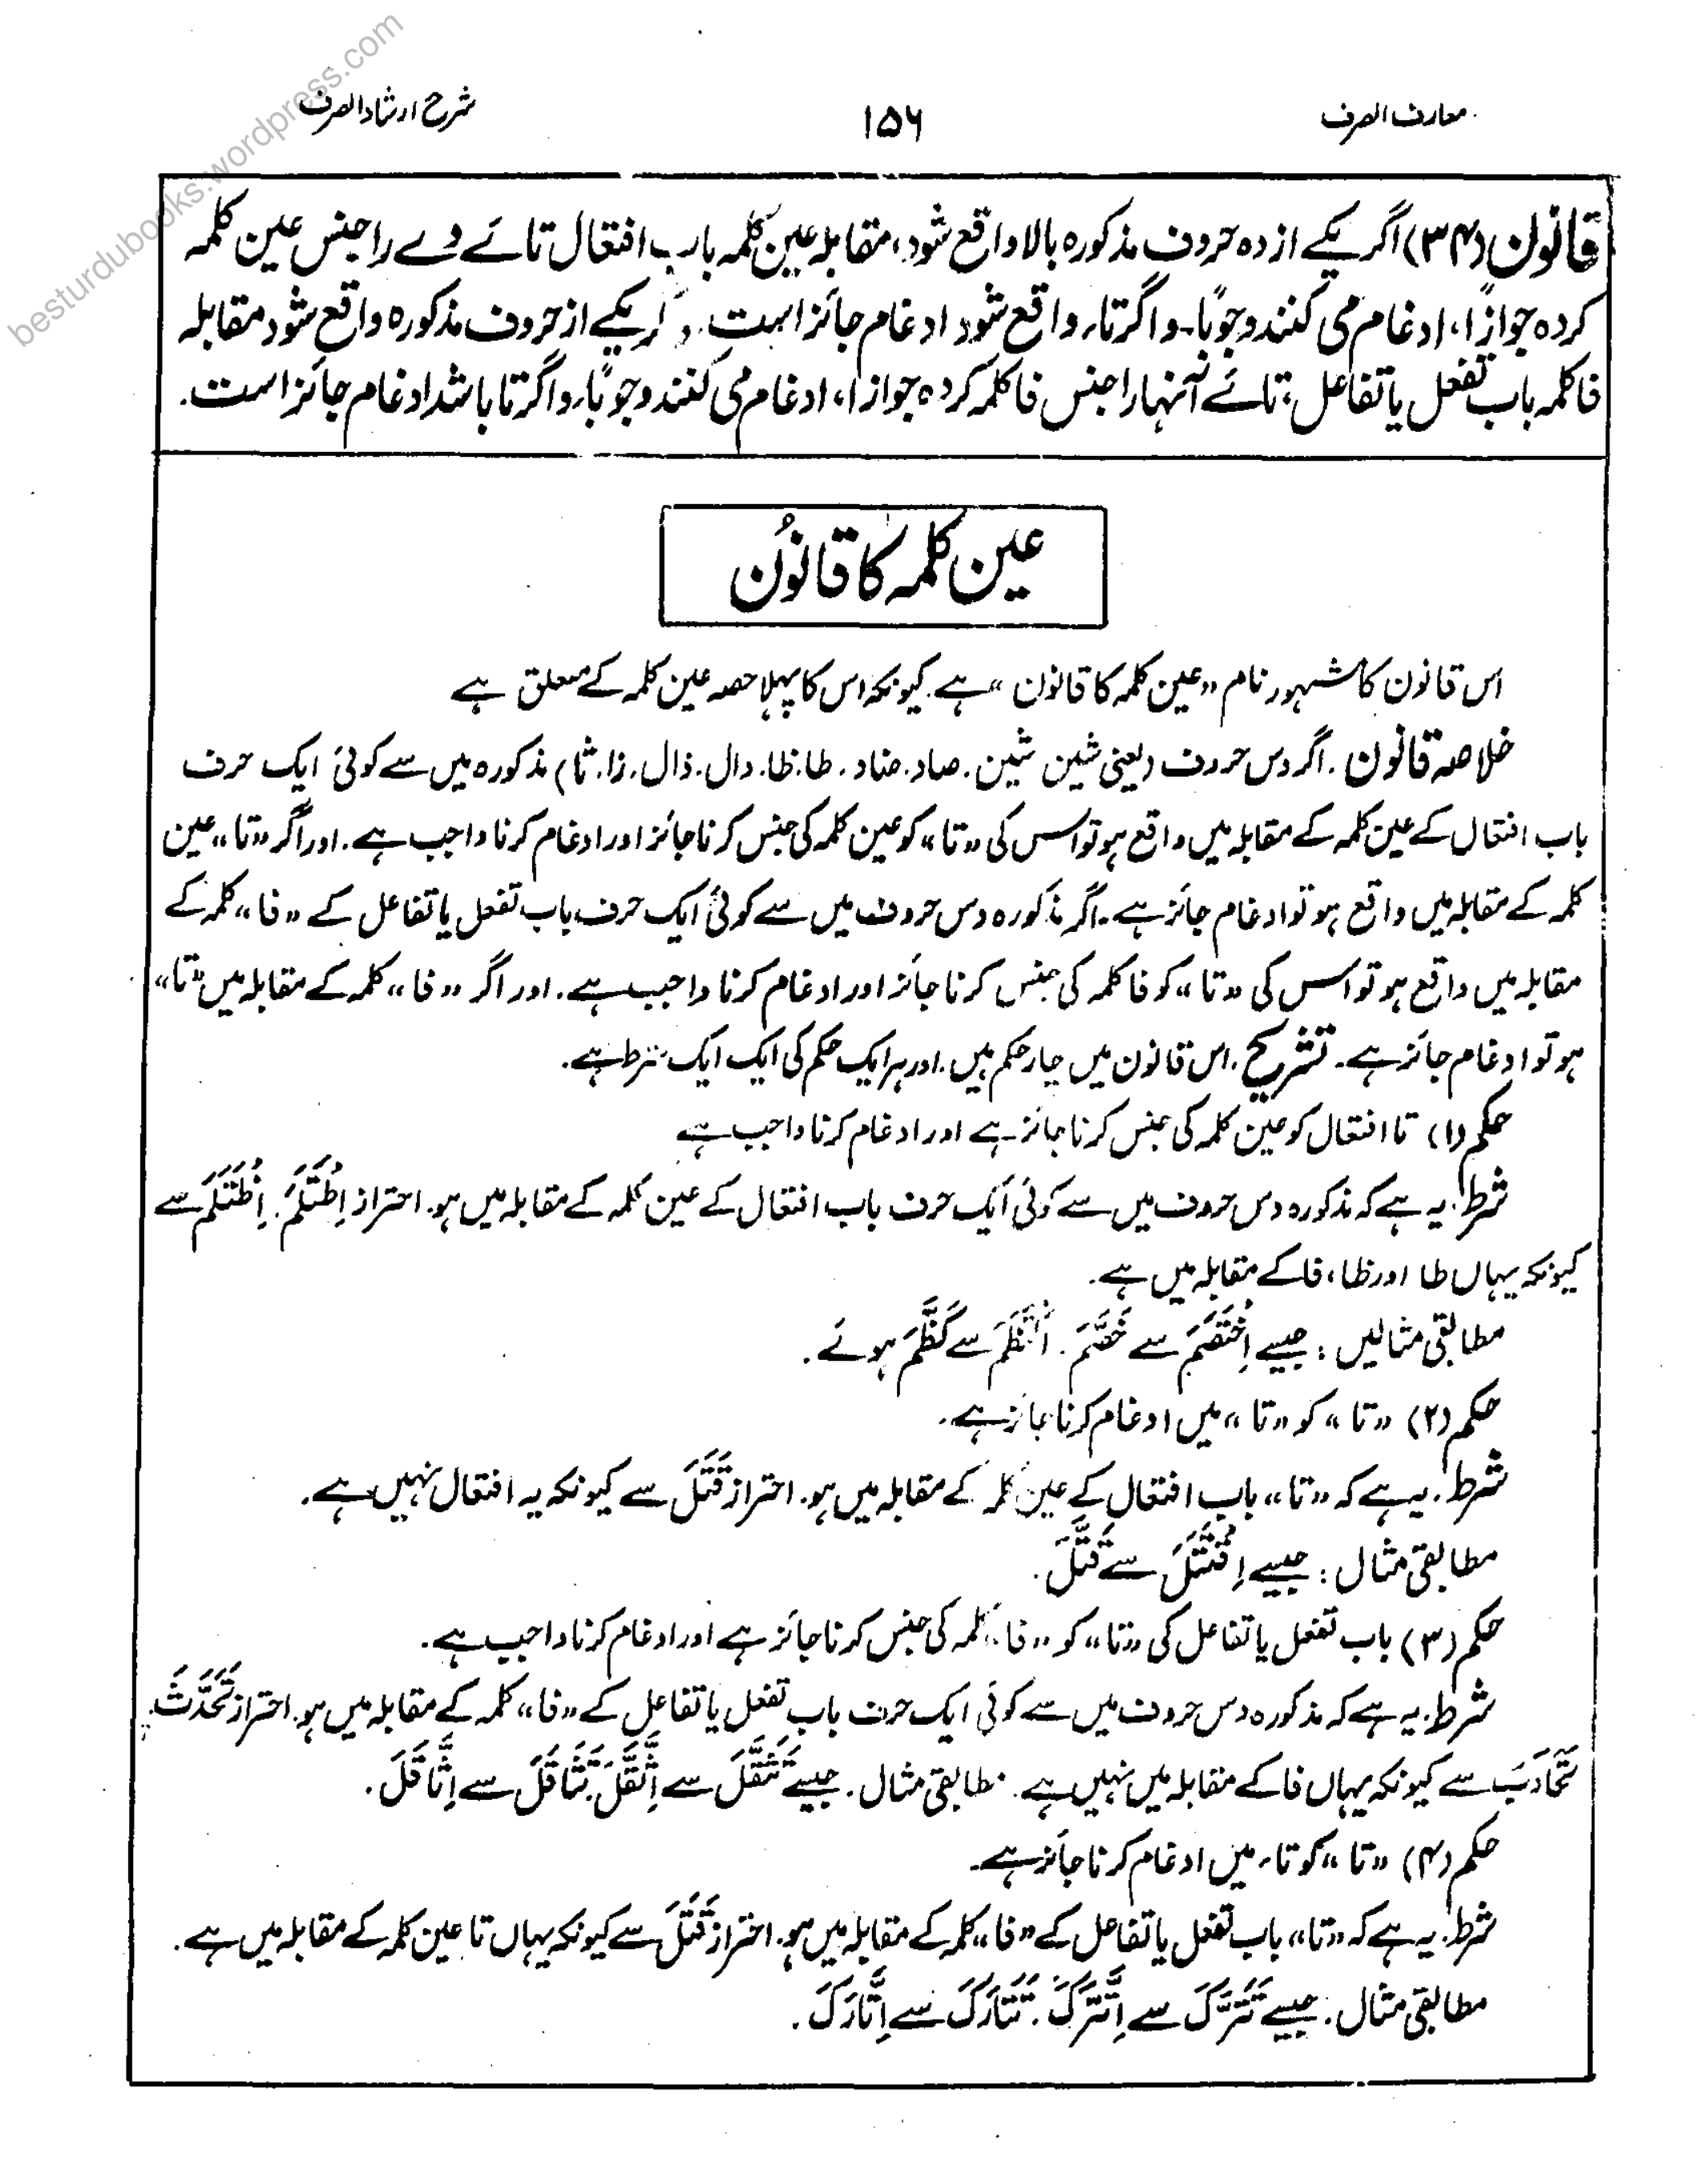 besturdubooks.wordpress.com
معارف الصرف
۱۵۶
شرح ارشاد الصرف
قانون (۳۴) اگر یکے از دہ حروف مذکورہ بالا واقع شود، مقابلہ عین کلمہ باب افتعال تائے وے را جنس عین کلمہ
کردہ جوازًا، ادغام می کنند وجوبًا۔ واگر تاء واقع شود ادغام جائز است۔ و گر یکے از حروف مذکورہ واقع شود مقابلہ
فا کلمہ باب تفعل یا تفاعل، تائے آنہارا جنس فا کلمہ کردہ جوازا، ادغام می کنند وجوبًا۔ واگر تا باشد ادغام جائز است۔
عین کلمہ کا قانوُن
اس قانون کا مشہور نام ”عین کلمہ کا قانون“ ہے کیونکہ اس کا پہلا حصہ عین کلمہ کے متعلق ہے
خلاصہ قانون۔ اگر دس حروف (یعنی شین شین۔ صاد۔ ضاد۔ طا۔ ظا۔ دال۔ ذال۔ زا۔ ثا) مذکورہ میں سے کوئی ایک حرف
باب افتعال کے عین کلمہ کے مقابلہ میں واقع ہو تو اس کی ”تا“ کو عین کلمہ کی جنس کرنا جائز اور ادغام کرنا واجب ہے۔ اور اگر ”تا“ عین
کلمہ کے مقابلہ میں واقع ہو تو ادغام جائز ہے۔ اگر مذکورہ دس حروف میں سے کوئی ایک حرف باب تفعل یا تفاعل کے ”فا“ کلمہ کے
مقابلہ میں واقع ہو تو اس کی ”تا“ کو فا کلمہ کی جنس کرنا جائز اور ادغام کرنا واجب ہے۔ اور اگر ”فا“ کلمہ کے مقابلہ میں ”تا“
ہو تو ادغام جائز ہے۔ تشریح۔ اس قانون میں چار حکم ہیں۔ اور ہر ایک حکم کی ایک ایک شرط ہے۔
حکم (۱) تا افتعال کو عین کلمہ کی جنس کرنا جائز ہے اور ادغام کرنا واجب ہے
شرط۔ یہ ہے کہ مذکورہ دس حروف میں سے کوئی ایک حرف باب افتعال کے عین کلمہ کے مقابلہ میں ہو۔ احتراز اِطْتَلَمَ۔ اِظْتَلَمَ سے
کیونکہ یہاں طا اور ظا، فا کے مقابلہ میں ہے۔
مطابقی مثالیں : جیسے اِخْتَصَمَ سے خَصَّمَ۔ سے كَظَّمَ ہوئے۔
حکم (۲) ”تا“ کو ”تا“ میں ادغام کرنا جائز ہے۔
شرط۔ یہ ہے کہ ”تا“ باب افتعال کے عین کلمہ کے مقابلہ میں ہو۔ احتراز قَتَلَ سے کیونکہ یہ افتعال نہیں ہے۔
مطابقی مثال : جیسے اِقْتَتَلَ سے قَتَّلَ۔
حکم (۳) باب تفعل یا تفاعل کی ”تا“ کو ”فا“ کلمہ کی جنس کرنا جائز ہے اور ادغام کرنا واجب ہے۔
شرط۔ یہ ہے کہ مذکورہ دس حروف میں سے کوئی ایک حرف باب تفعل یا تفاعل کے ”فا“ کلمہ کے مقابلہ میں ہو۔ احتراز تَحَدَّثَ۔
تَحَادَبَ سے کیونکہ یہاں فا کے مقابلہ میں نہیں ہے۔ مطابقی مثال۔ جیسے تَثَقَّلَ سے اِثَّقَّلَ۔ تَثَاقَلَ سے اِثَّاقَلَ۔
حکم (۴) ”تا“ کو تاء میں ادغام کرنا جائز ہے۔
شرط۔ یہ ہے کہ ”تا“ باب تفعل یا تفاعل کے ”فا“ کلمہ کے مقابلہ میں ہو۔ احتراز قَتَلَ سے کیونکہ یہاں تا عین کلمہ کے مقابلہ میں ہے۔
مطابقی مثال۔ جیسے تَتَرَّكَ سے اِتَّرَّكَ۔ تَتَارَكَ سے اِتَّارَكَ۔